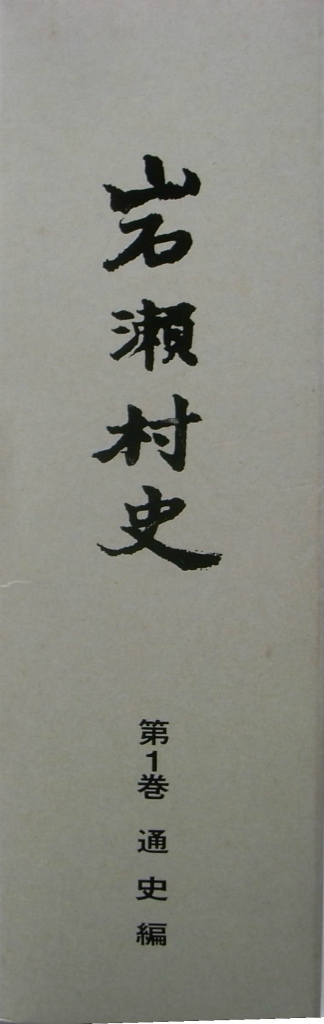 岩瀬村史
第1巻 通史編